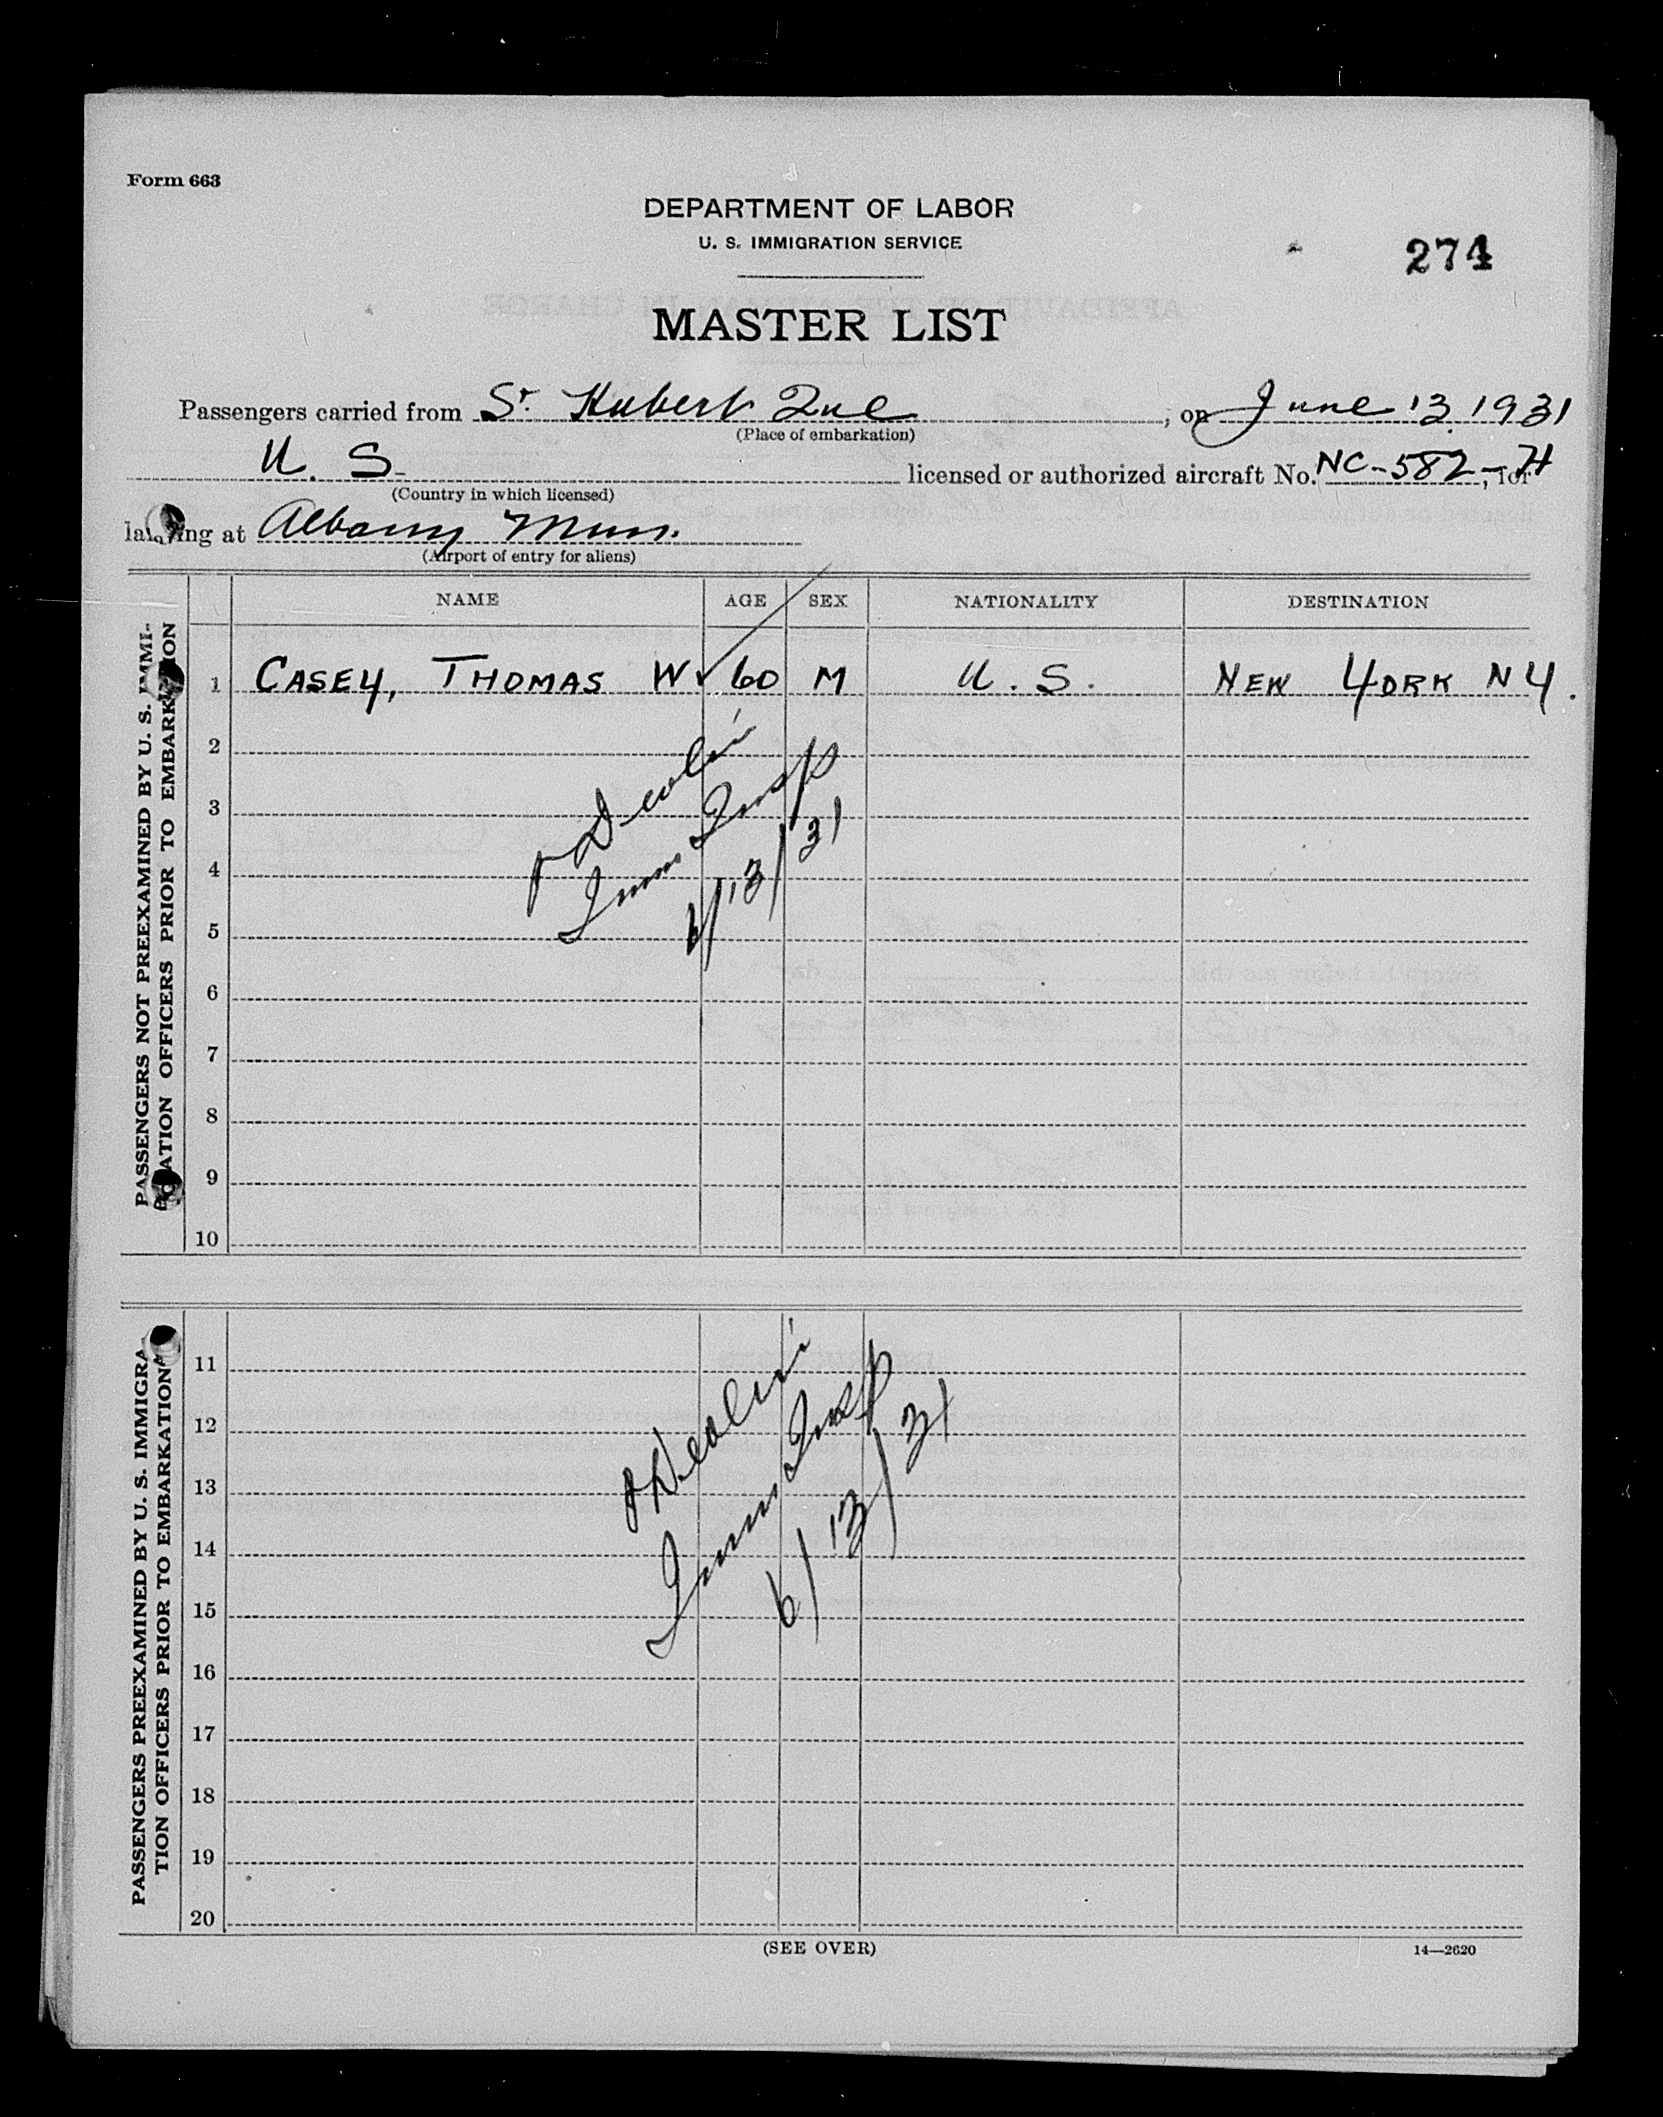 Form 663
DEPARTMENT OF LABOR
U. S. IMMIGRATION SERVICE
274
MASTER LIST
Passengers carried from St. Hubert Que, on June 13, 1931
(Place of embarkation)
U. S. licensed or authorized aircraft No. NC-582-H, for
(Country in which licensed)
landing at Albany Mun.
(Airport of entry for aliens)
NAME AGE SEX NATIONALITY DESTINATION
PASSENGERS NOT PREEXAMINED BY U. S. IMMI-
GRATION OFFICERS PRIOR TO EMBARKATION
1 CASEY, THOMAS W ✓ 60 M U. S. NEW YORK N Y.
2
3
4
5
6
7
8
9
10
Imm Insp
6/13/31
PASSENGERS PREEXAMINED BY U. S. IMMIGRA-
TION OFFICERS PRIOR TO EMBARKATION
11
12
13
14
15
16
17
18
19
20
Imm Insp
6/13/31
(SEE OVER)
14—2620